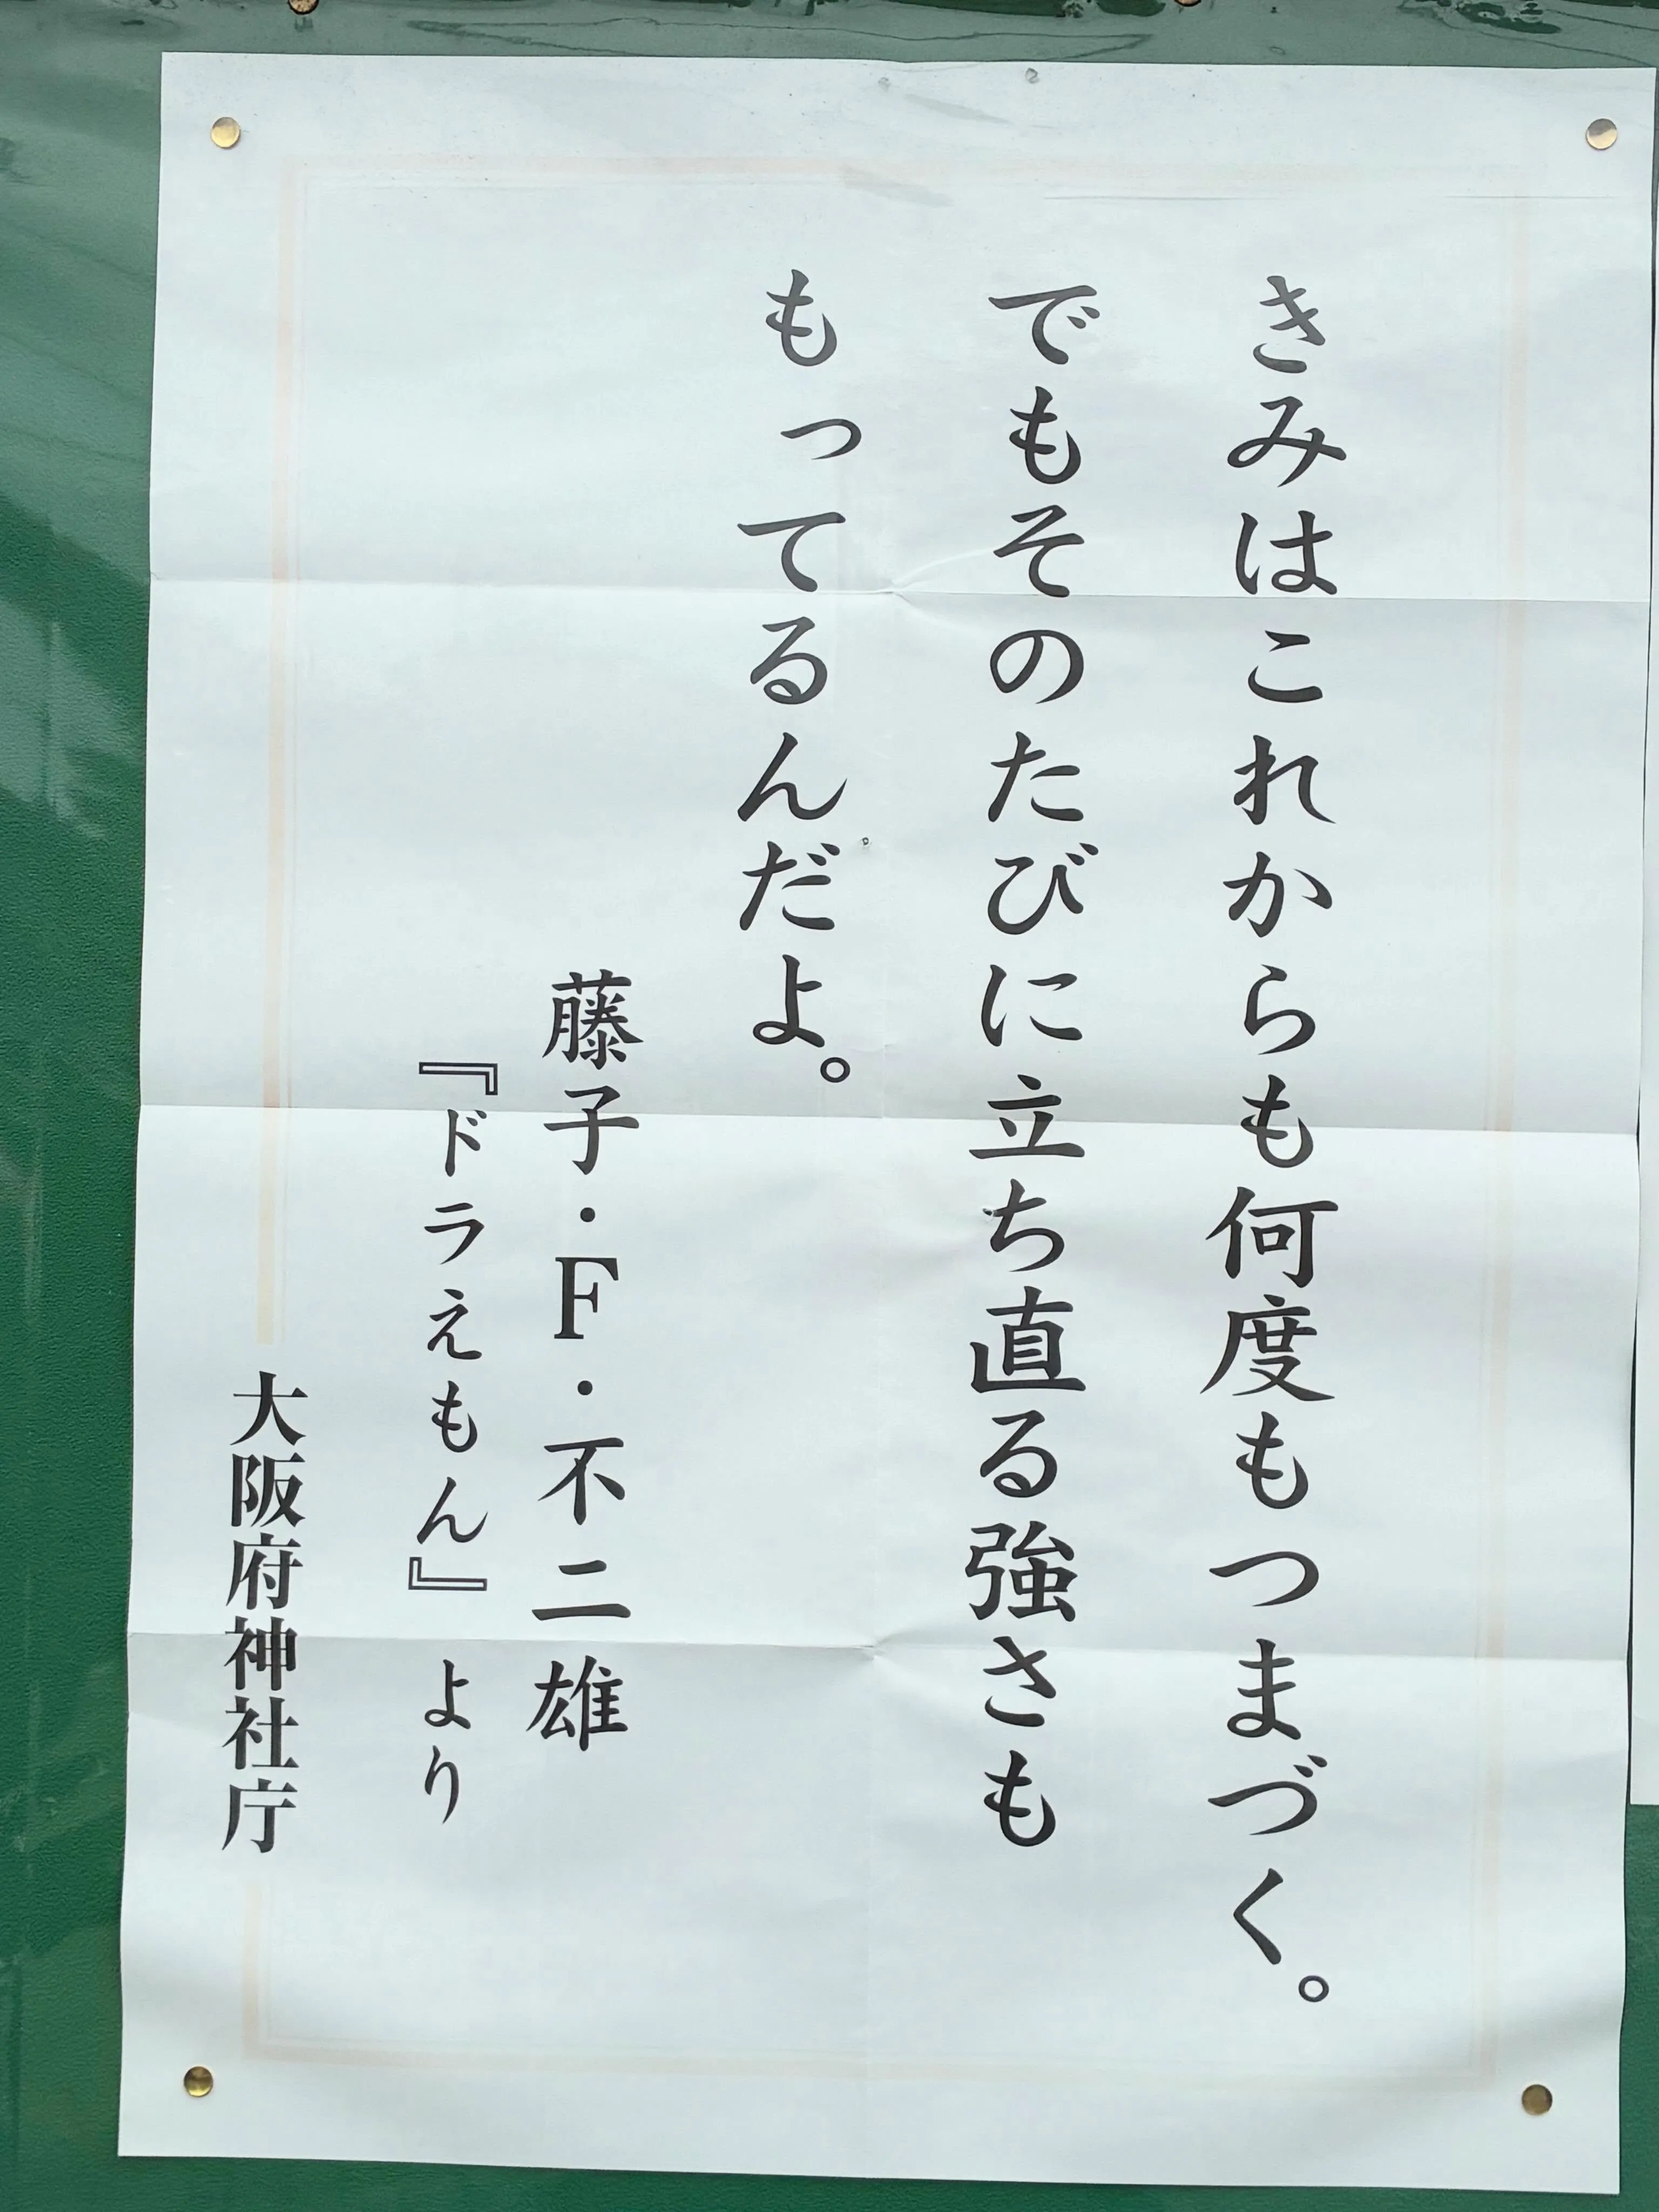 きみはこれからも何度もつまづく。
でもそのたびに立ち直る強さも
もってるんだよ。
藤子・F・不二雄
『ドラえもん』より
大阪府神社庁